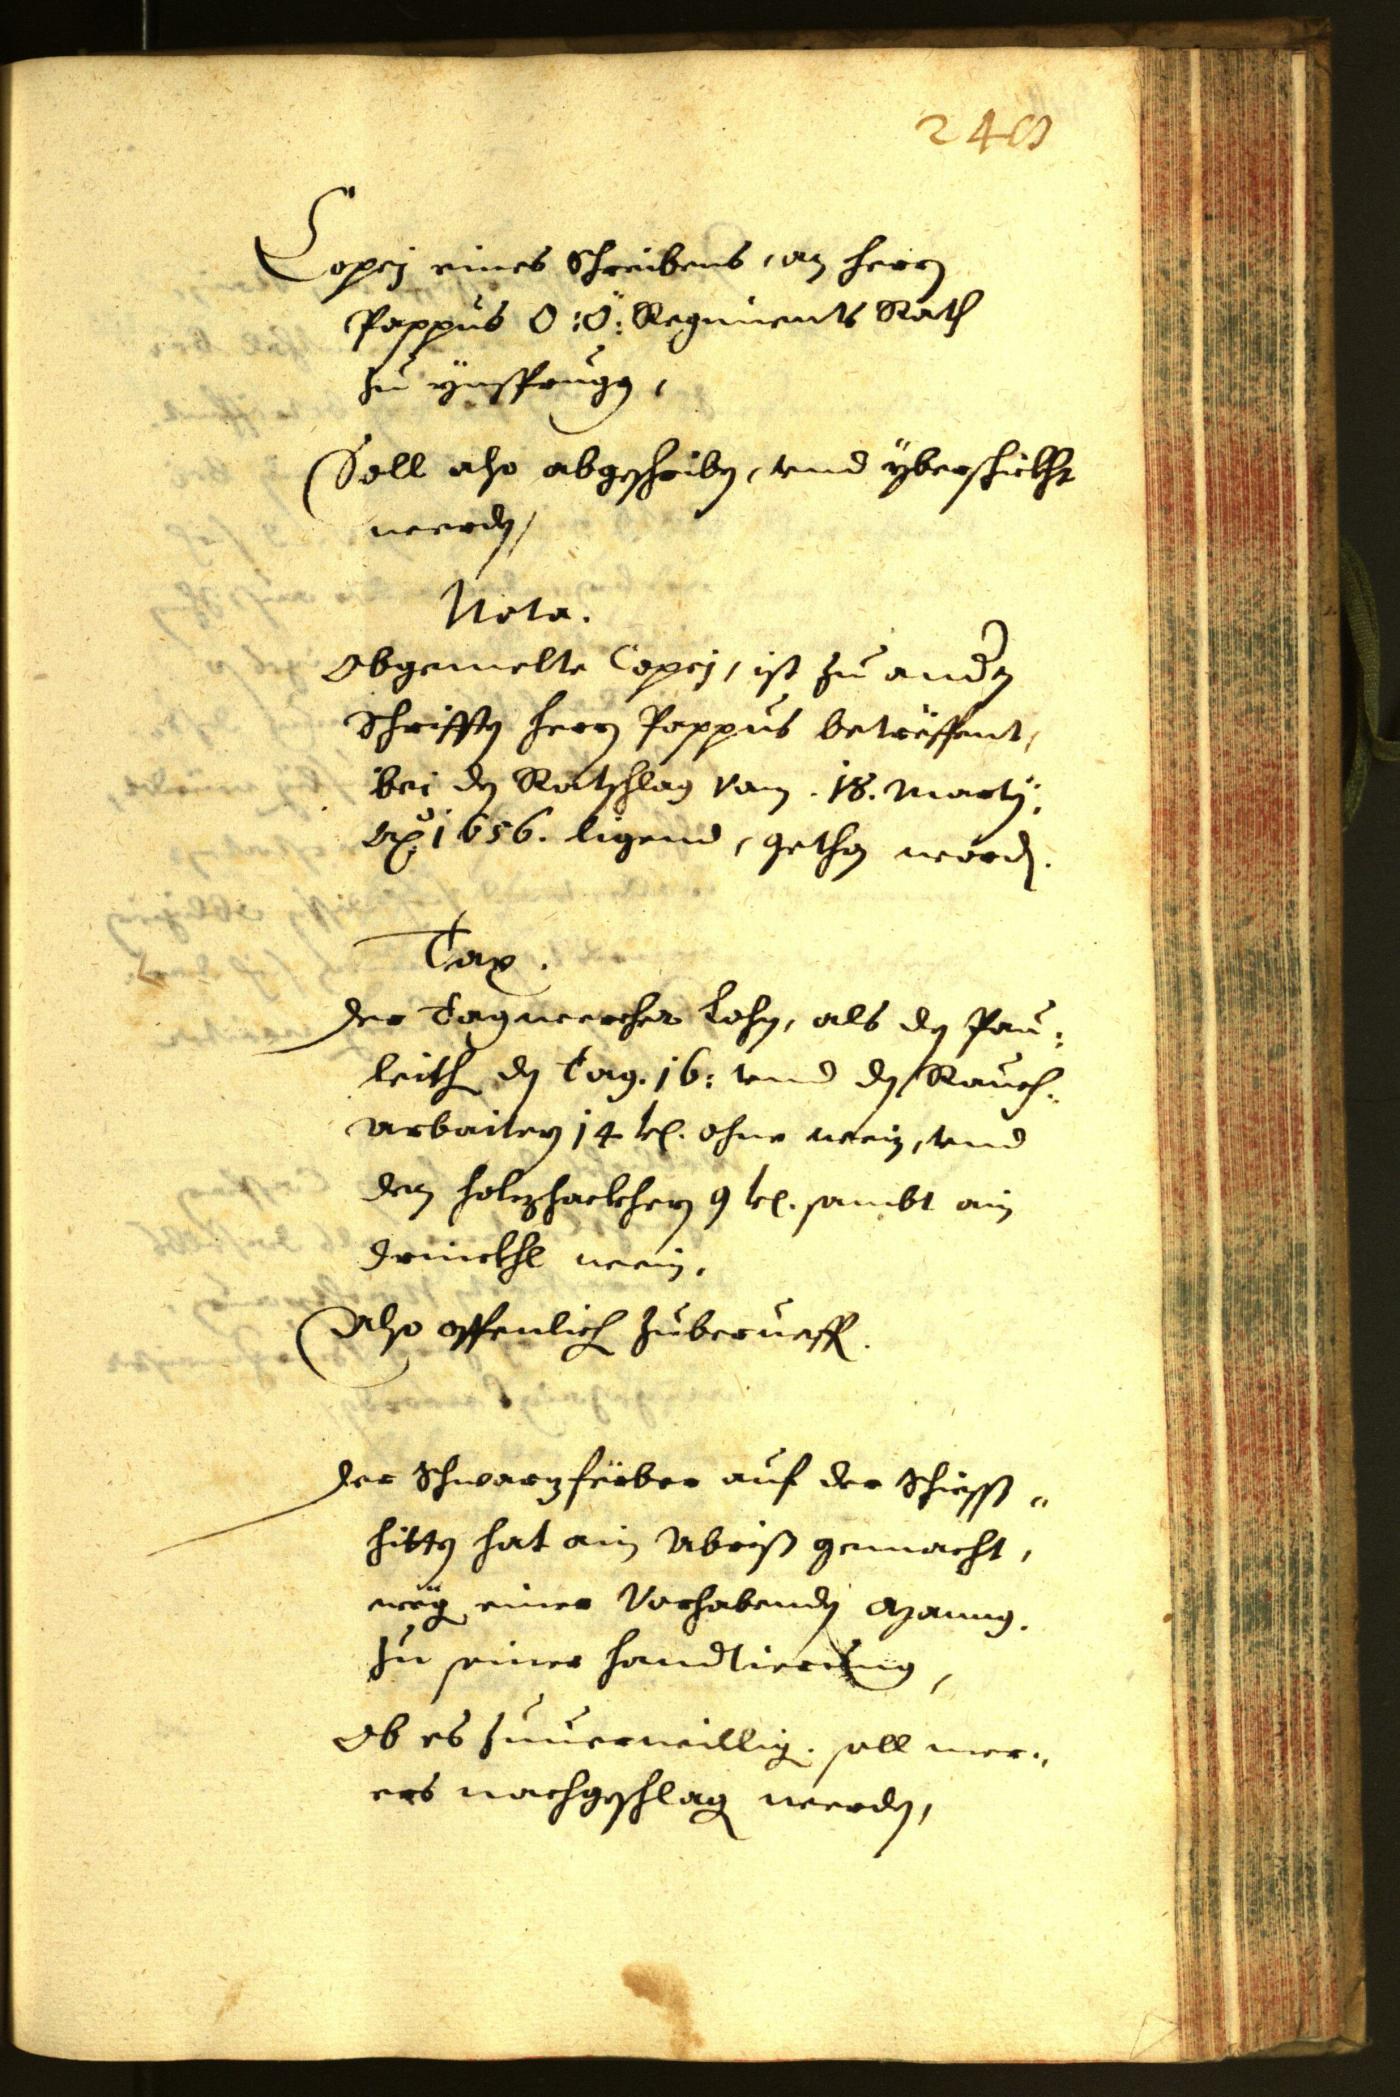 240
Copej eines Schreibens, an herrn
Pappus O:Ö: Regiments Rath
zu ynsprugg,
Soll also abgeschriben, vnd yberschickht
werden,
Nota.
Obgemelte Copej, ist zu andern
Schrifften herrn Pappus betreffent,
bei den Ratschlag vom .18. Martij:
Ao 1656. ligend, gethan worden.
Tax.
der Tagwercher Lohn, als den Pau:
leith den Tag. 16: vnd den Rauch:
arbaitern 14 kr. ohne wein, vnd
den holzhackhern 9 kr. sambt ain
drinckhl wein.
Also offenlich zuberueffen.
der Schwarzferber auf der Schiess
hitten hat ain Abriss gemacht,
weg einer Vorhabenden
zu seiner handtierung,
Ob es zuuerwillig. soll mer:
ers nachgeschlagen werden,